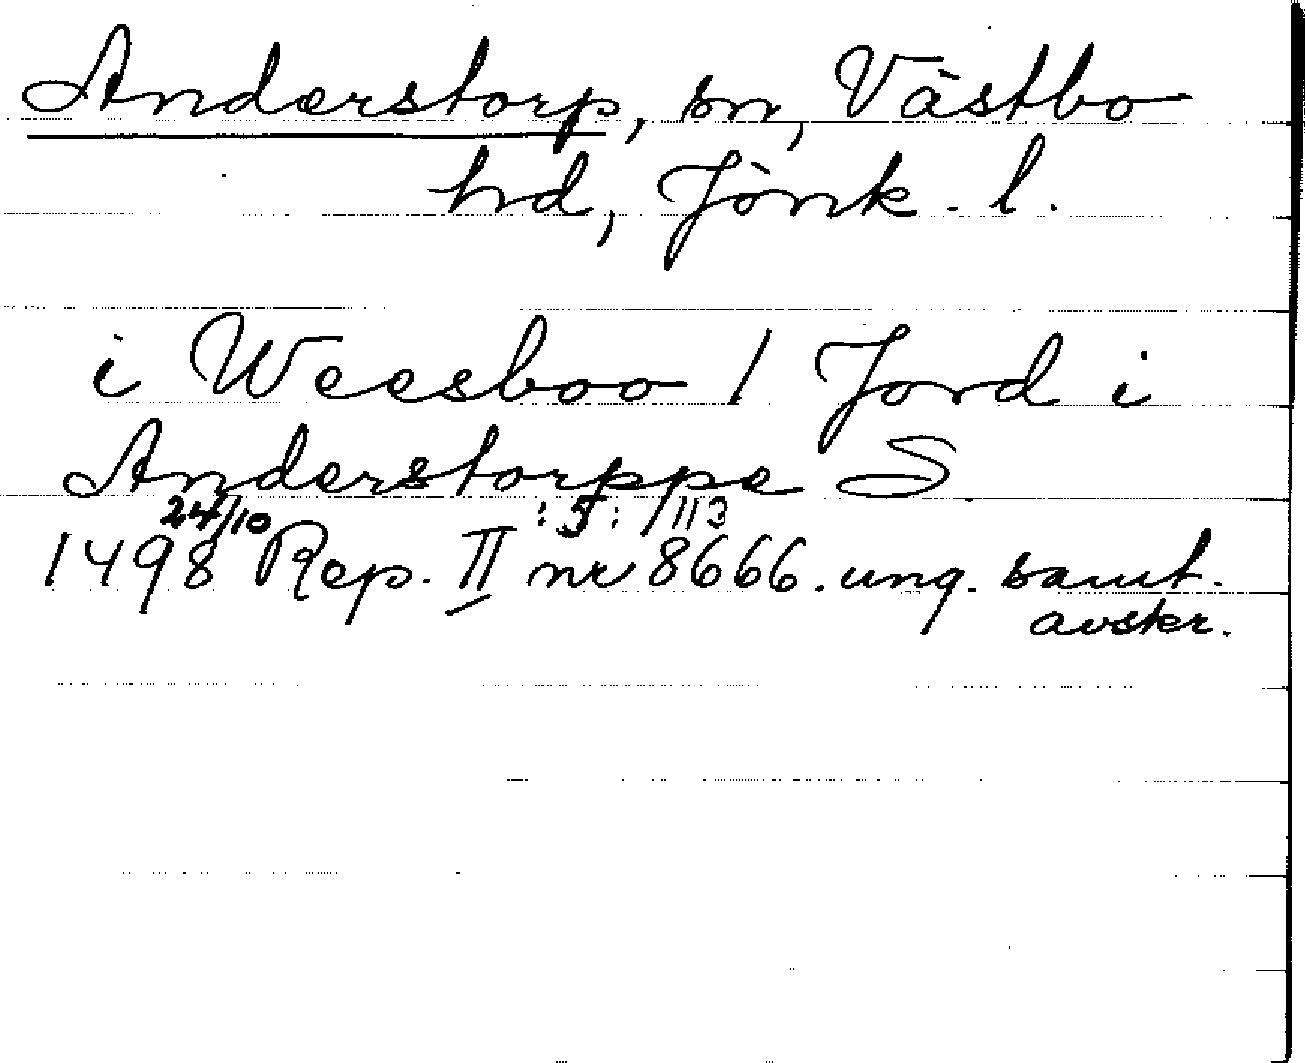 Anderstorp, sn, Västbo
hd, Jönk. l.
i Weesboo / Jord i
Anderstorppe S
24/10 :5: /113
1498 Rep. II nr 8666. ung. samt.
avskr.